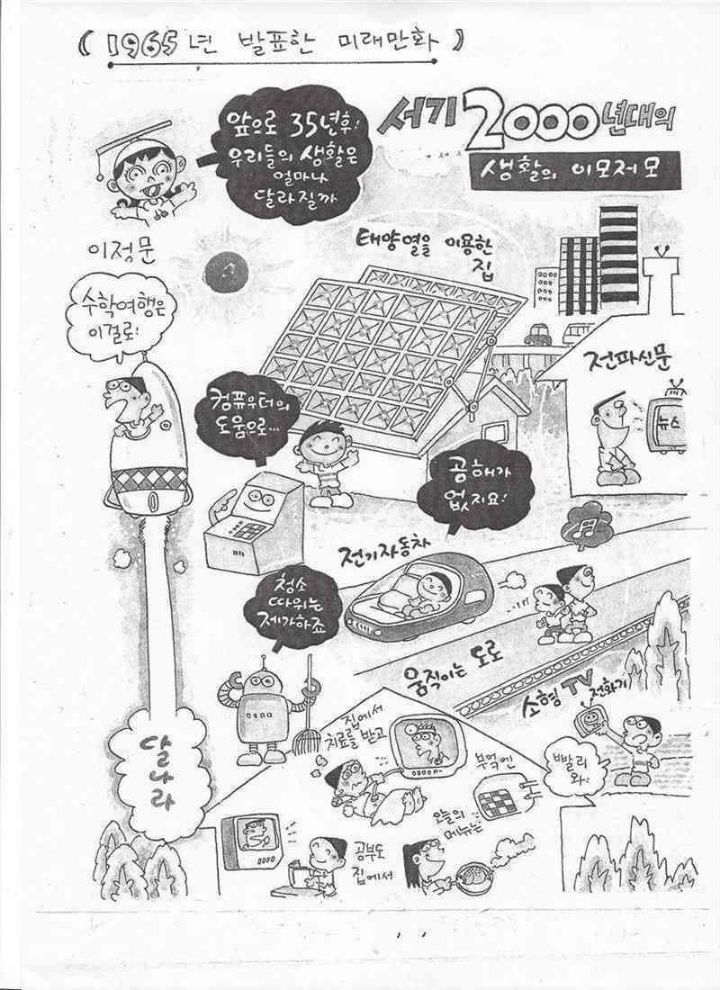 ( 1965년 발표한 미래만화 )
앞으로 35년후!
우리들의 생활은
얼마나
달라질까
서기 2000년대의
생활의 이모저모
이정문
태양열을 이용한
집
수학여행은
이걸로!
전파신문
뉴스
컴퓨우터의
도움으로...
공해가
없지요!
전기자동차
청소
따위는
제가하죠
움직이는 도로
소형 TV 전화기
빨리
와!
달나라
집에서
치료를 받고
부엌엔
오늘의
메뉴는
공부도
집에서